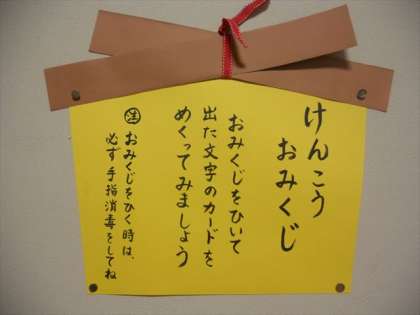 けんこう
おみくじ
おみくじをひいて
出た文字のカードを
めくってみましょう
㊟おみくじをひく時は、
必ず手指消毒をしてね